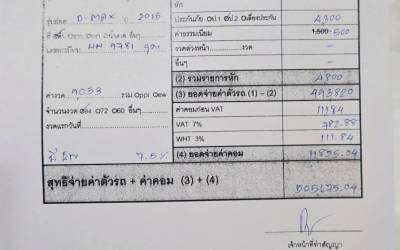 รุ่นย่อย D-MAX ปี 2015
ประกันภัย ป.1 ป.2 เบี้ยงประกัน 4300
ค่าธรรมเนียม 1,500 500
งวดล่วงหน้า งวด -
อื่นๆ -
(2) รวมรายการหัก 4800
ค่างวด 9033 รวม PPI EW (3) ยอดจ่ายค่าตัวรถ (1) - (2) 493820
จำนวนงวด 72 60 อื่นๆ ค่าคอมก่อน VAT 11184
งวดแรกวันที่ VAT 7% 782.88
WHT 3% 111.84
7.5% (4) ยอดจ่ายค่าคอม 11855.04
สุทธิจ่ายค่าตัวรถ + ค่าคอม (3) + (4) 505675.04
เจ้าหน้าที่ทำสัญญา